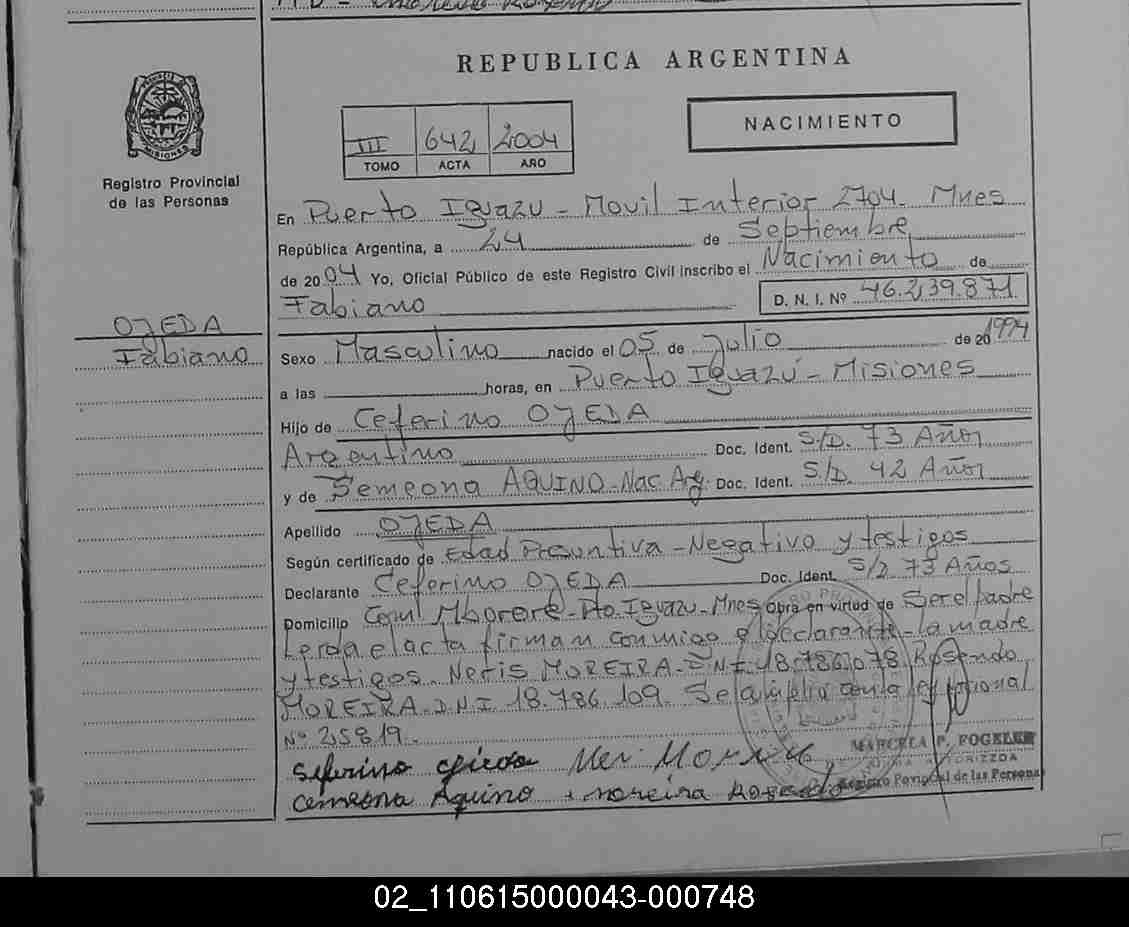 REPUBLICA ARGENTINA
NACIMIENTO
III 642 2004
TOMO ACTA AÑO
MISIONES
Registro Provincial
de las Personas
En Puerto Iguazu - Movil Interior 2704. Mnes
República Argentina, a 24 de Septiembre
de 2004 Yo, Oficial Público de este Registro Civil inscribo el Nacimiento de
Fabiano D. N. I. Nº 46.239.871
OJEDA
Fabiano
Sexo Masculino nacido el 05 de Julio de 20 1994
a las horas, en Puerto Iguazú - Misiones
Hijo de Ceferino OJEDA
Argentino Doc. Ident. S/D. 73 Años
y de Semeona AQUINO - Nac Arg. Doc. Ident. S/D. 42 Años
Apellido OJEDA
Según certificado de Edad Presuntiva - Negativo y testigos
Declarante Ceferino OJEDA Doc. Ident. S/D 73 Años
Domicilio Mbororé - Pto Iguazu - Mnes Obra en virtud de Ser el padre
el acta firman conmigo el declarante - la madre
y testigos. Neris MOREIRA - DNI 18.786.078 Rosendo
MOREIRA - D.N.I 18.786.109. Se
Nº 25819.
MARCELA P. FOGELER
Registro Provincial de las Personas
Seferino
Aquino moreira
02_110615000043-000748